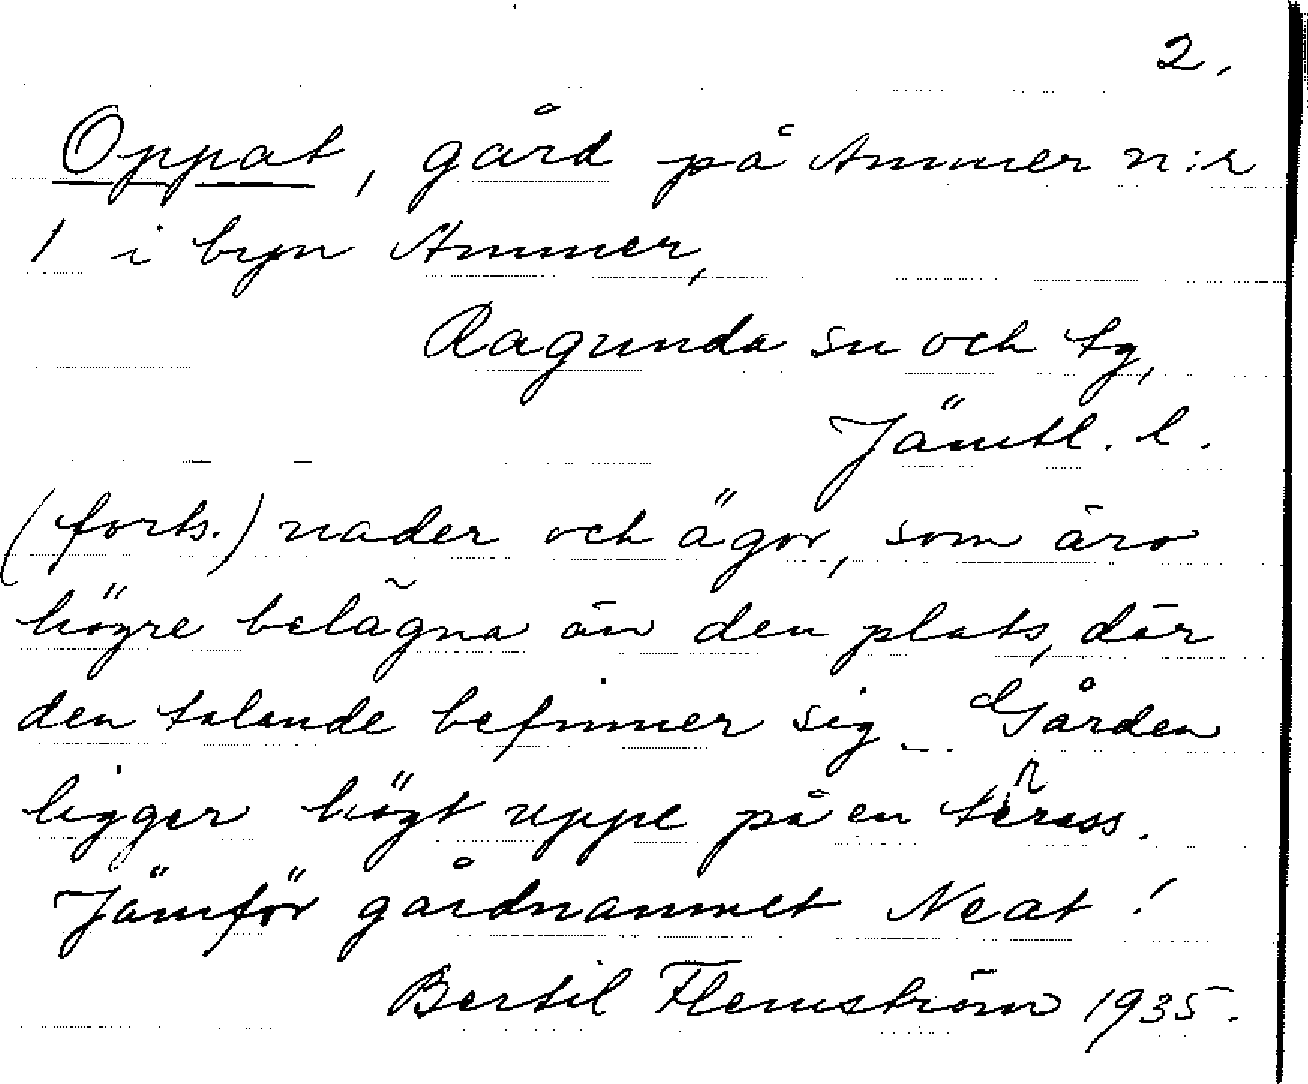 2.
Oppat, gård på Ammer n:r
1 i byn Ammer,
Ragunda sn och tg,
Jämtl. l.
(forts.) nader och ägor, som äro
högre belägna än den plats, där
den talande befinner sig. Gården
ligger högt uppe på en terrass.
Jämför gårdnamnet Neat!
Bertil Flemström 1935.